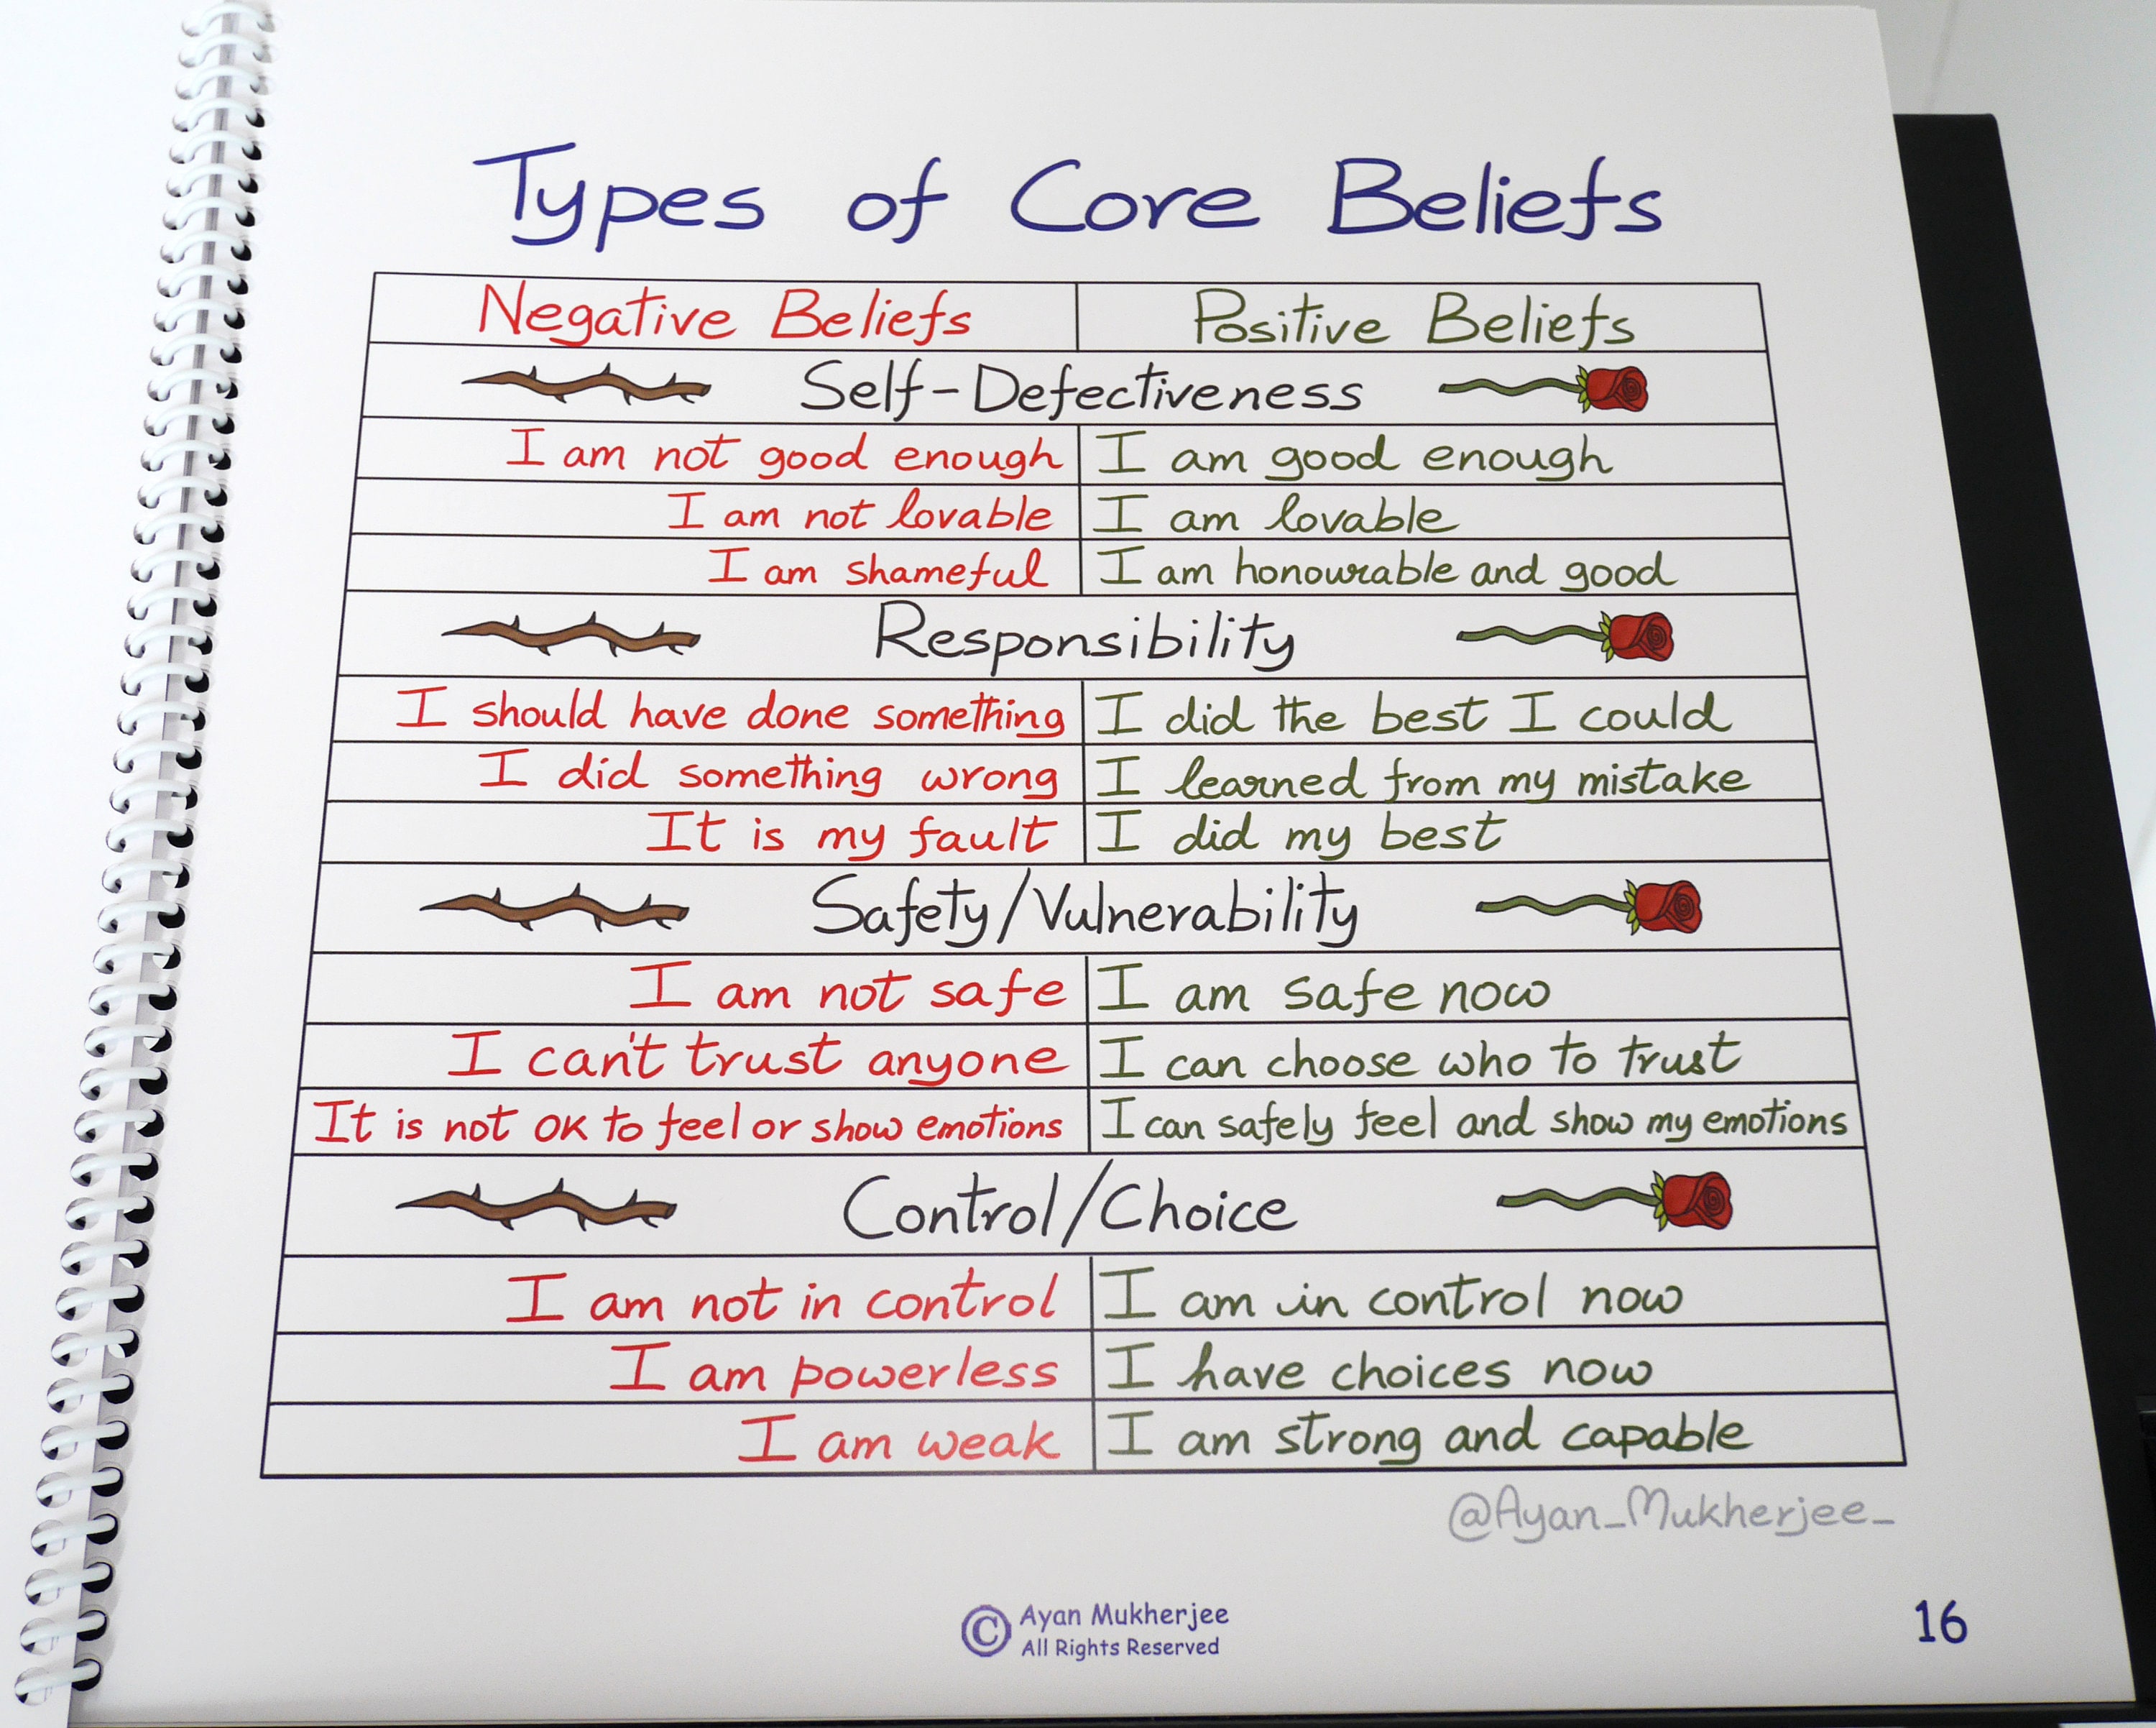 Types of Core Beliefs
Negative Beliefs Positive Beliefs
Self-Defectiveness
I am not good enough I am good enough
I am not lovable I am lovable
I am shameful I am honourable and good
Responsibility
I should have done something I did the best I could
I did something wrong I learned from my mistake
It is my fault I did my best
Safety/Vulnerability
I am not safe I am safe now
I can't trust anyone I can choose who to trust
It is not OK to feel or show emotions I can safely feel and show my emotions
Control/Choice
I am not in control I am in control now
I am powerless I have choices now
I am weak I am strong and capable
@Ayan_Mukherjee_
© Ayan Mukherjee
All Rights Reserved
16